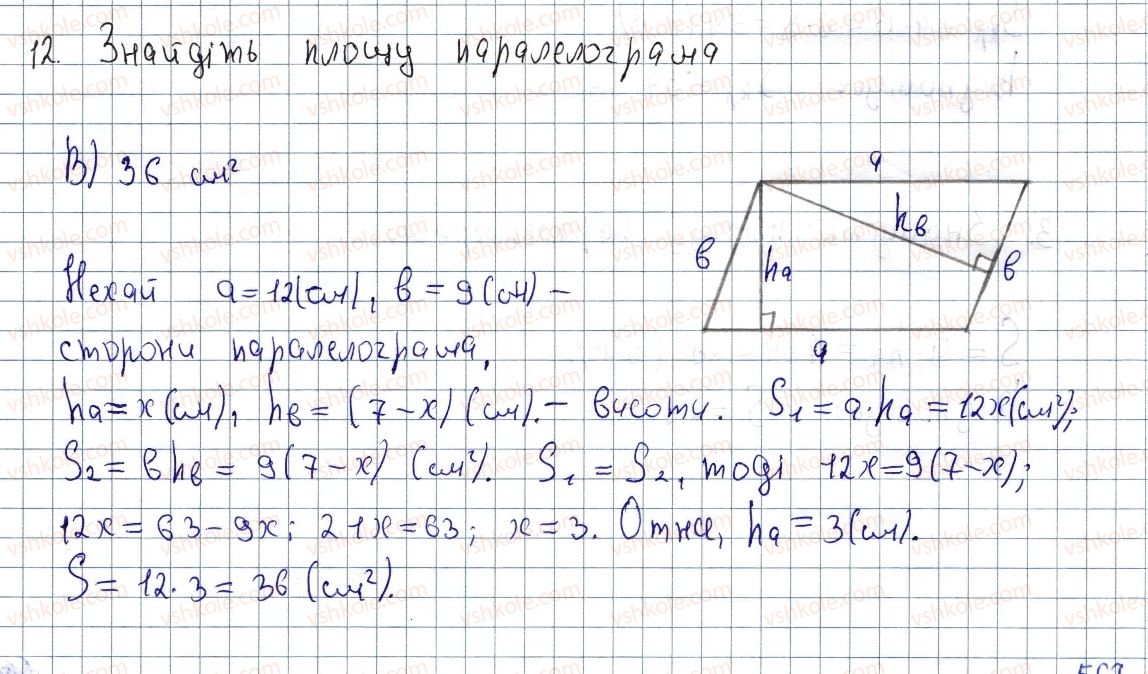 12. Знайдіть площу паралелограма
В) 36 см²
a
hв
в
hа
в
a
Нехай a = 12 (см), в = 9 (см) –
сторони паралелограма,
hа = x (см), hв = (7 – x) (см). – висоти. S₁ = a · hа = 12x (см²);
S₂ = вhв = 9(7 – x) (см²). S₁ = S₂, тоді 12x = 9(7 – x);
12x = 63 – 9x; 21x = 63; x = 3. Отже, hа = 3 (см).
S = 12 · 3 = 36 (см²).